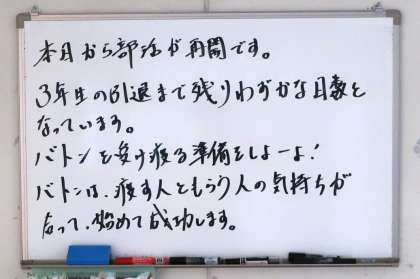 本日から部活が再開です。
3年生の引退まで残りわずかな日数と
なっています。
バトンを受け渡る準備をしよーよ!
バトンは、渡す人ともらう人の気持ちが
合って、始めて成功します。